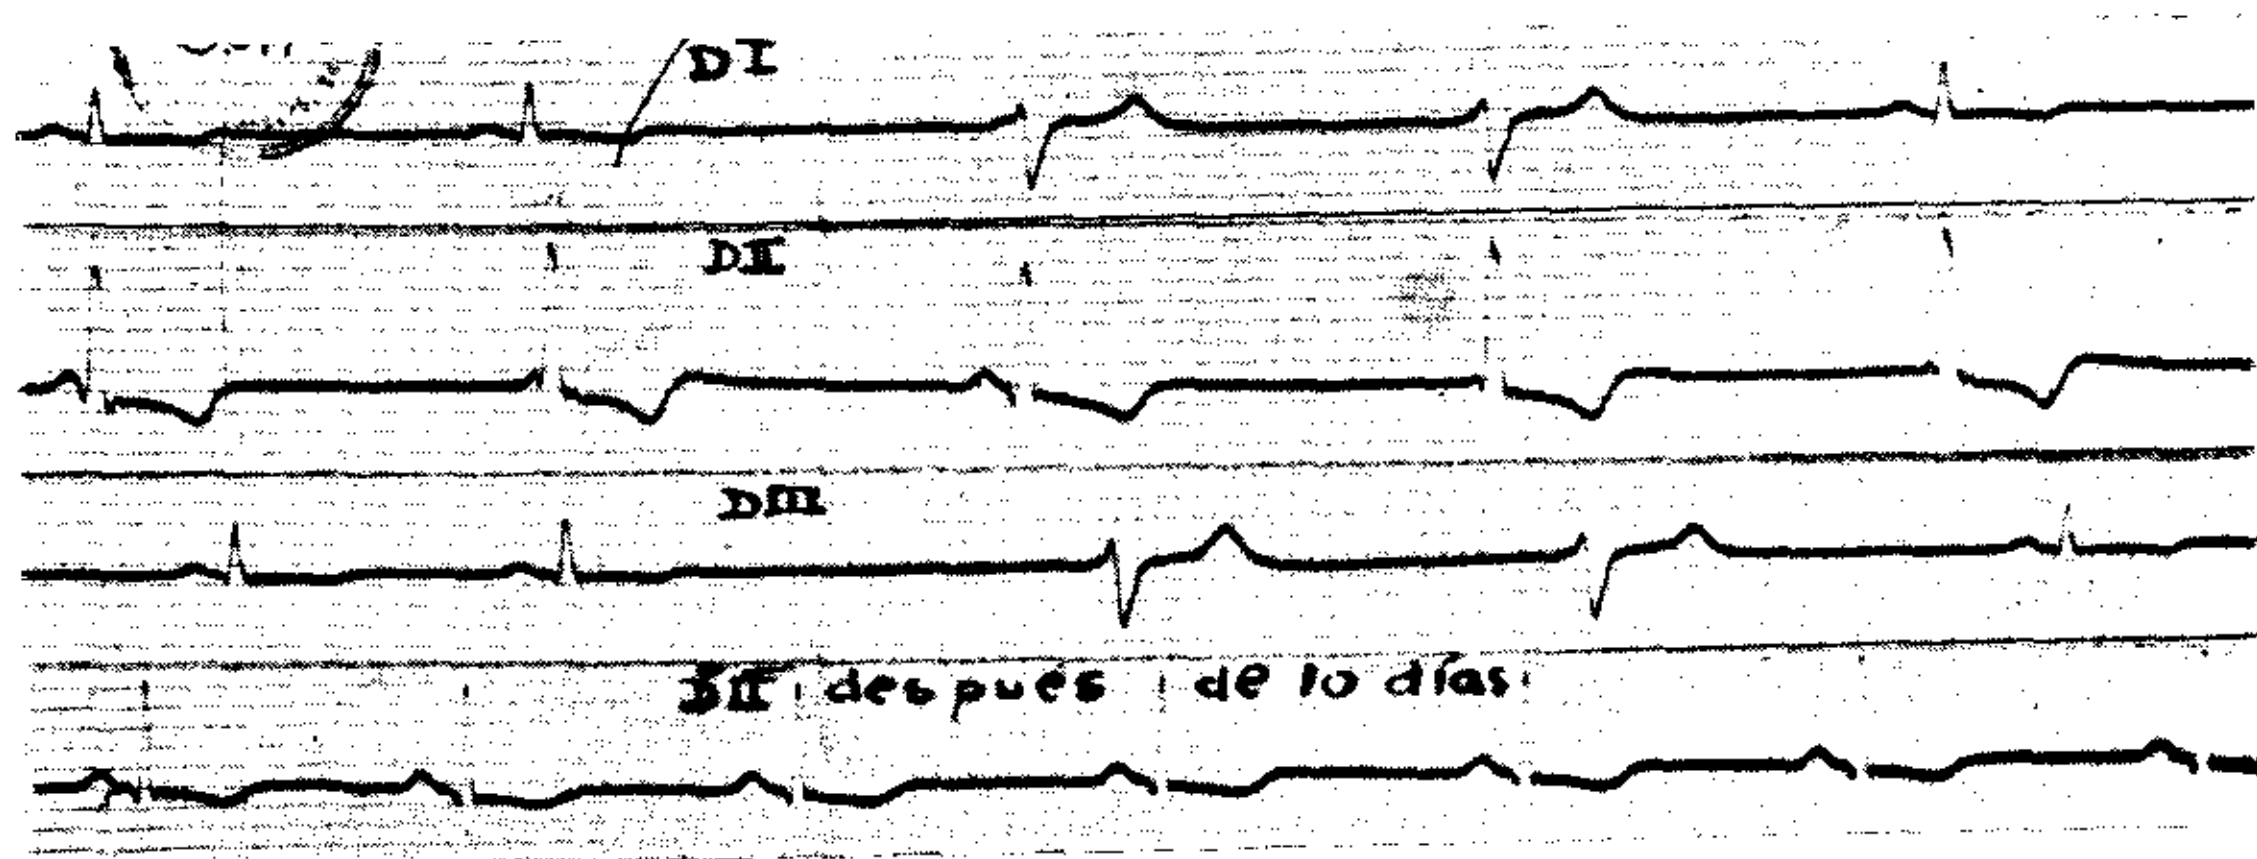 DI
DII
DIII
DII después de 10 días